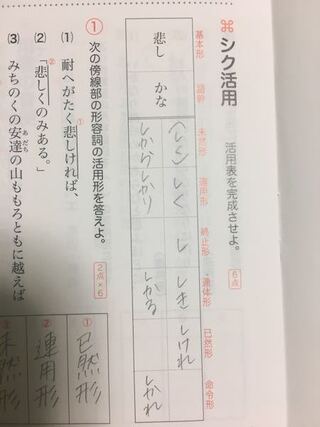 ⌘ シク活用
活用表を完成させよ。
6点
基本形 語幹 未然形 連用形 終止形 連体形 已然形 命令形
悲し かな (しく) しく し しき しけれ
しから しかり しかる しかれ
① 次の傍線部の形容詞の活用形を答えよ。
2点×6
(1) 耐へがたく悲しければ、
①
(2) 「悲しくのみある。」
②
(3) みちのくの安達の山ももろともに越えば
あだち
① 已然形
② 連用形
③ 未然形